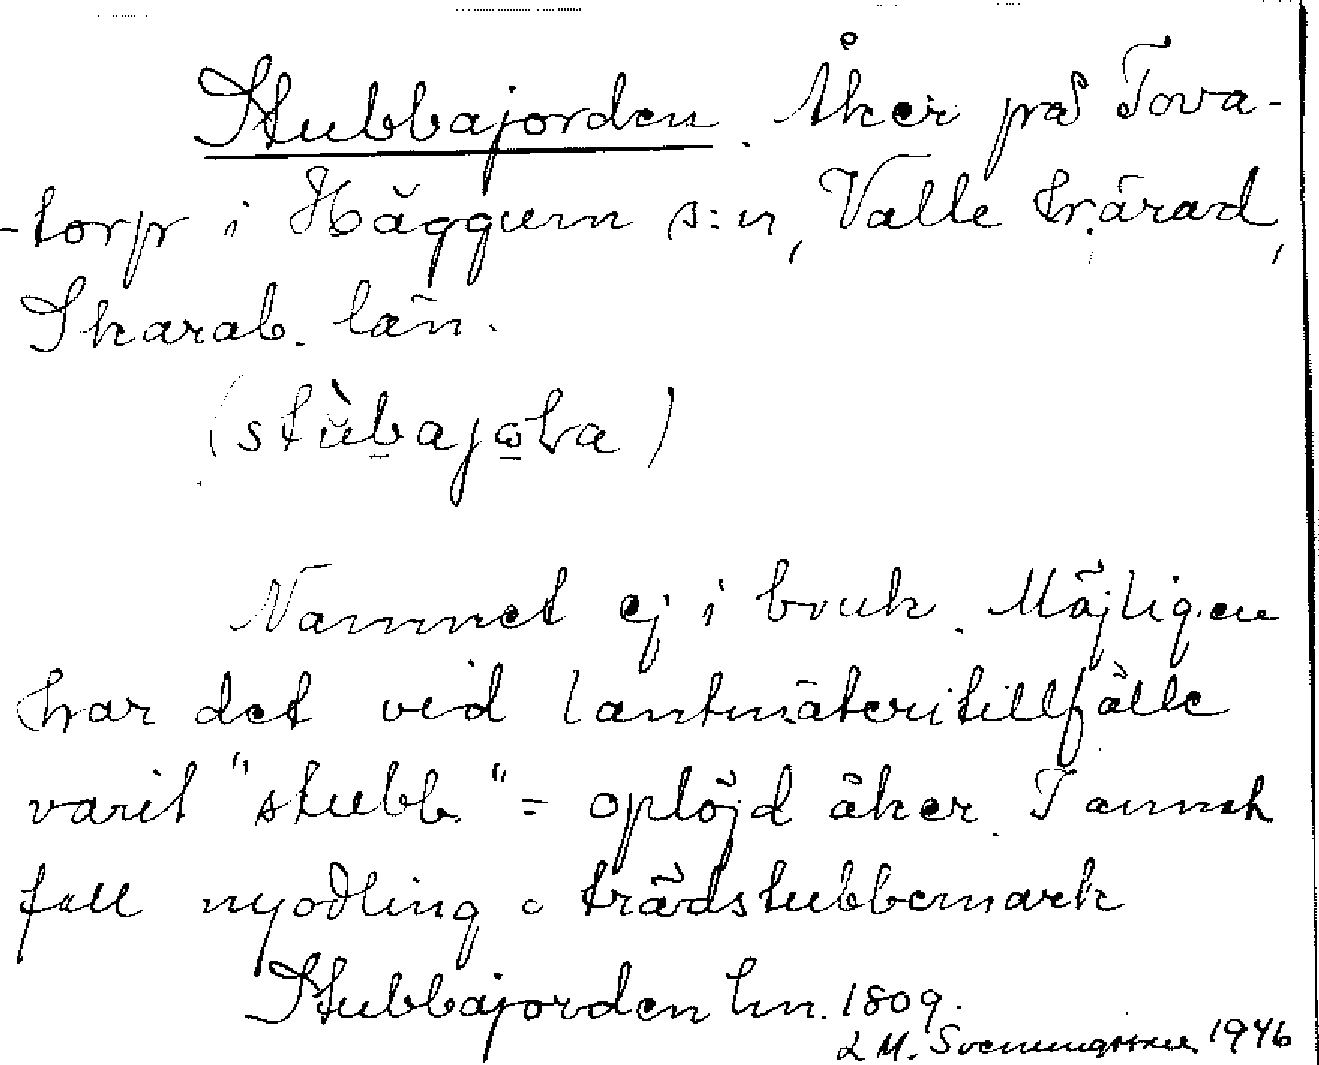 Stubbajorden. Åker på Tova-
-torp i Häggum s:n, Valle härad,
Skarab. län.
(stùbajo̲ka)
Namnet ej i bruk. Möjligen
har det vid lantmäteritillfälle
varit "stubb" = oplöjd åker. I annat
fall nyodling o trädstubbemark
Stubbajorden hm. 1809.
L M. Svenungsson 1946